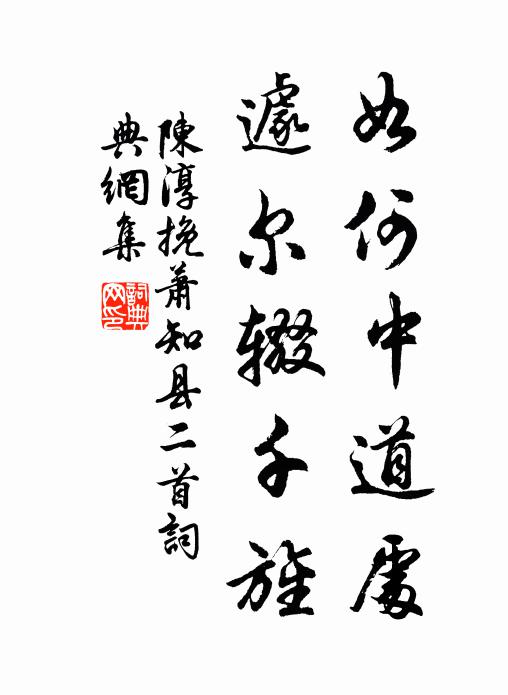 如何中道處
遽尔辍千旌
陳淳挽蕭知县二首詞
典網集
詞典网印